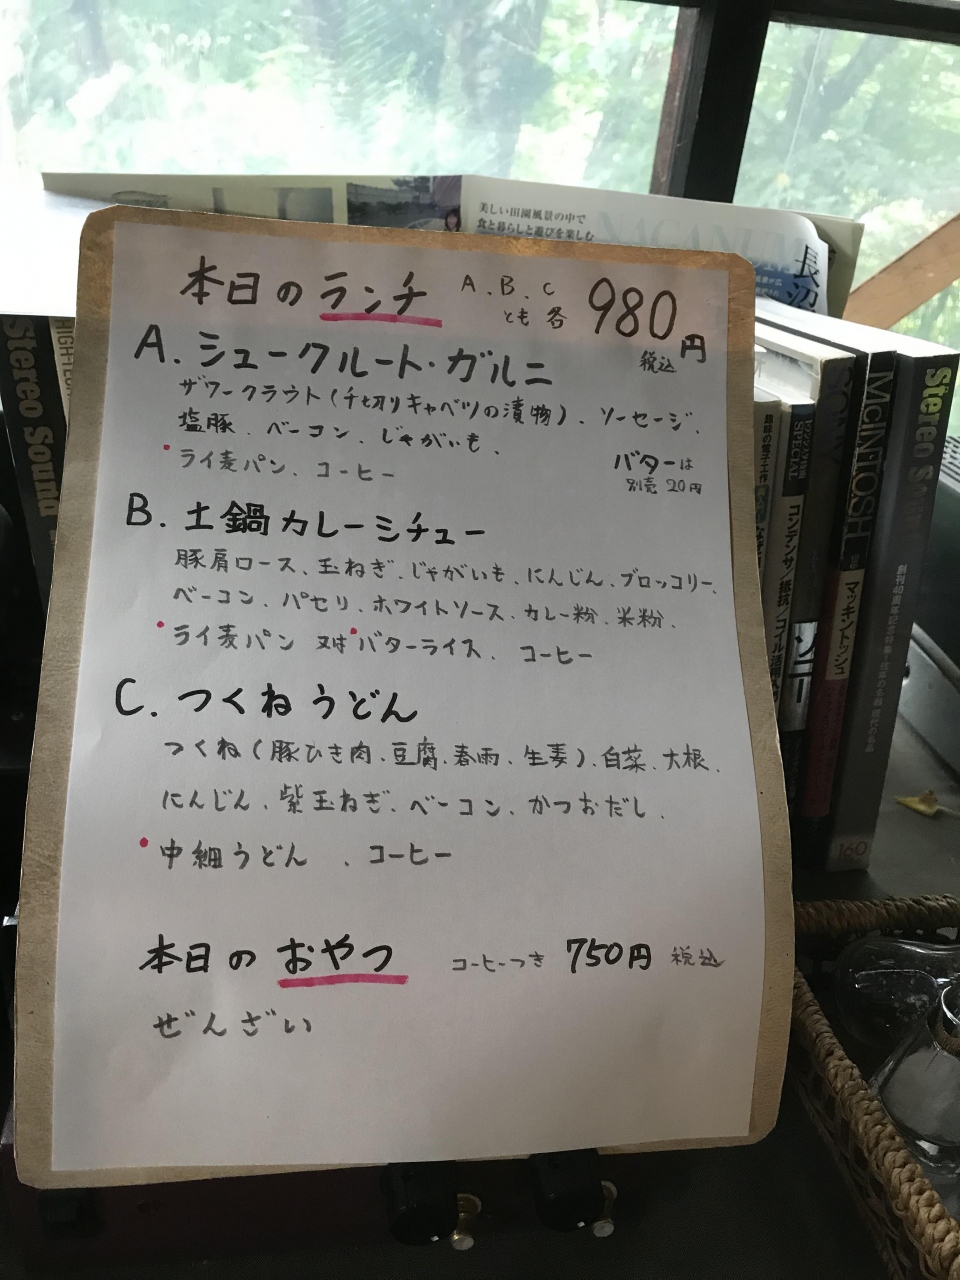 美しい田園風景の中で
食と暮らしと遊びを楽しむ
NAGANUMA
長沼
本日のランチ A.B.C とも各 980円 税込
A.シュークルート・ガルニ
ザワークラウト(千切りキャベツの漬物)、ソーセージ、
塩豚、ベーコン、じゃがいも、
・ライ麦パン、コーヒー
バターは
別売 20円
B.土鍋カレーシチュー
豚肩ロース、玉ねぎ、じゃがいも、にんじん、ブロッコリー、
ベーコン、パセリ、ホワイトソース、カレー粉、米粉、
・ライ麦パン 又は・バターライス、コーヒー
C.つくねうどん
つくね(豚ひき肉、豆腐、春雨、生姜)、白菜、大根、
にんじん、紫玉ねぎ、ベーコン、かつおだし、
・中細うどん 、コーヒー
本日のおやつ コーヒーつき 750円 税込
ぜんざい
Stereo Sound
SPECIAL
コンデンサ/抵抗/コイル活用
ソニー
McINTOSH
マッキントッシュ
Stereo Sound
160